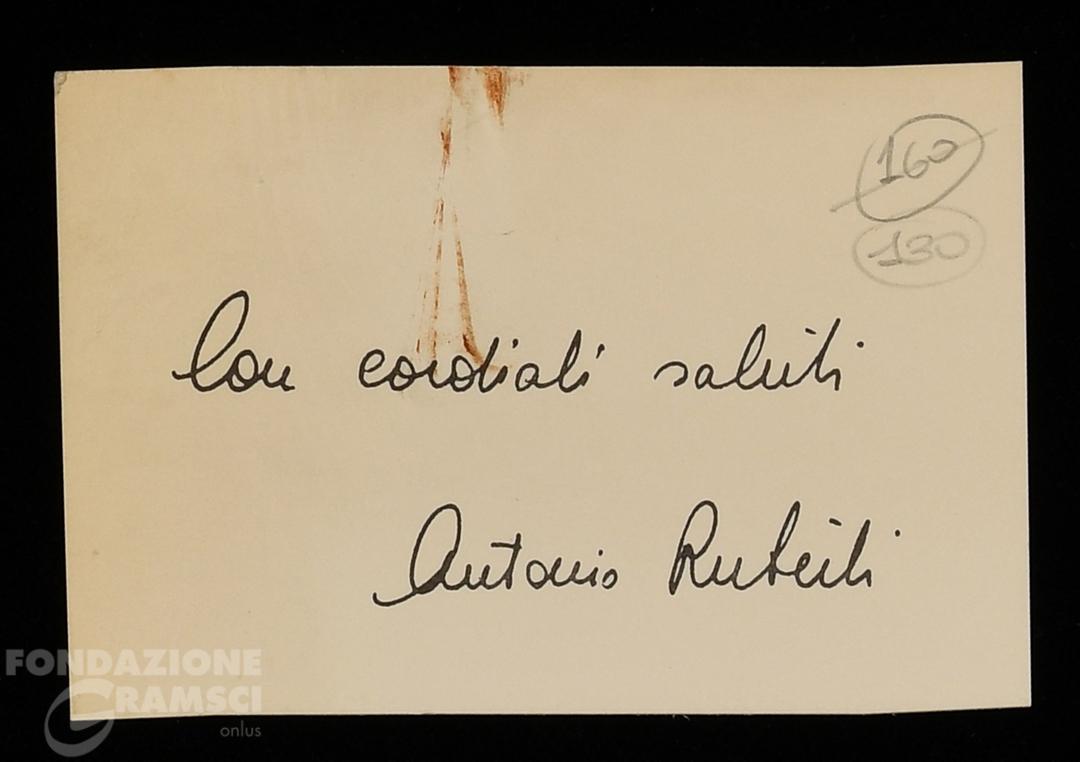 160
130
Con cordiali saluti
Antonio Ruberti
FONDAZIONE
GRAMSCI
onlus